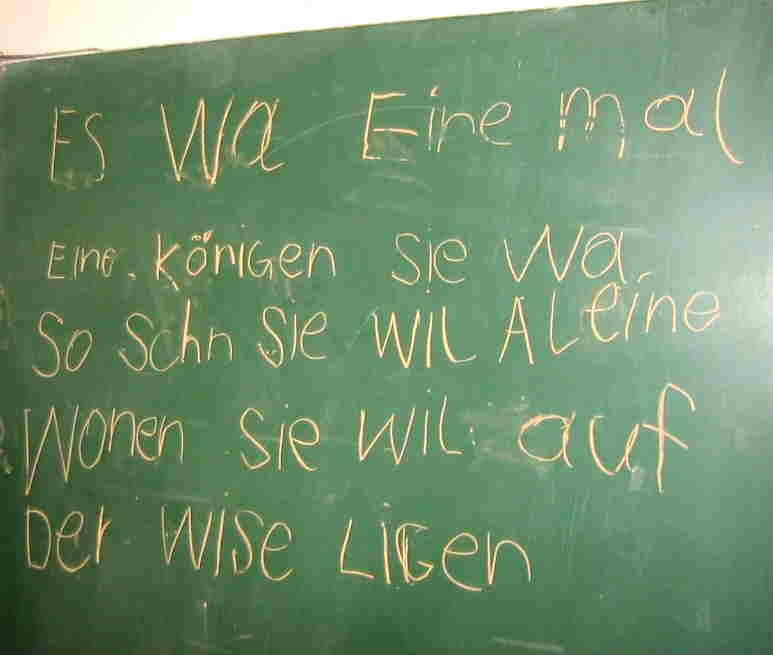 ES WA Eine mal
Eine. königen sie wa
So Schn Sie WIL ALeine
WONEN SIE WIL auf
Der WISE LIGen